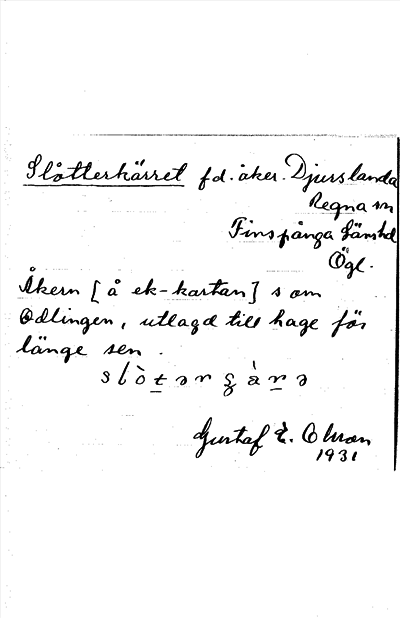 Slåtterkärret fd. åker. Djurslanda
Regna sn
Finspånga länshd
Ögl.
Åkern [å ek-kartan] s om
Odlingen, utlagd till hage för
länge sen.
Gustaf E. Olson
1931